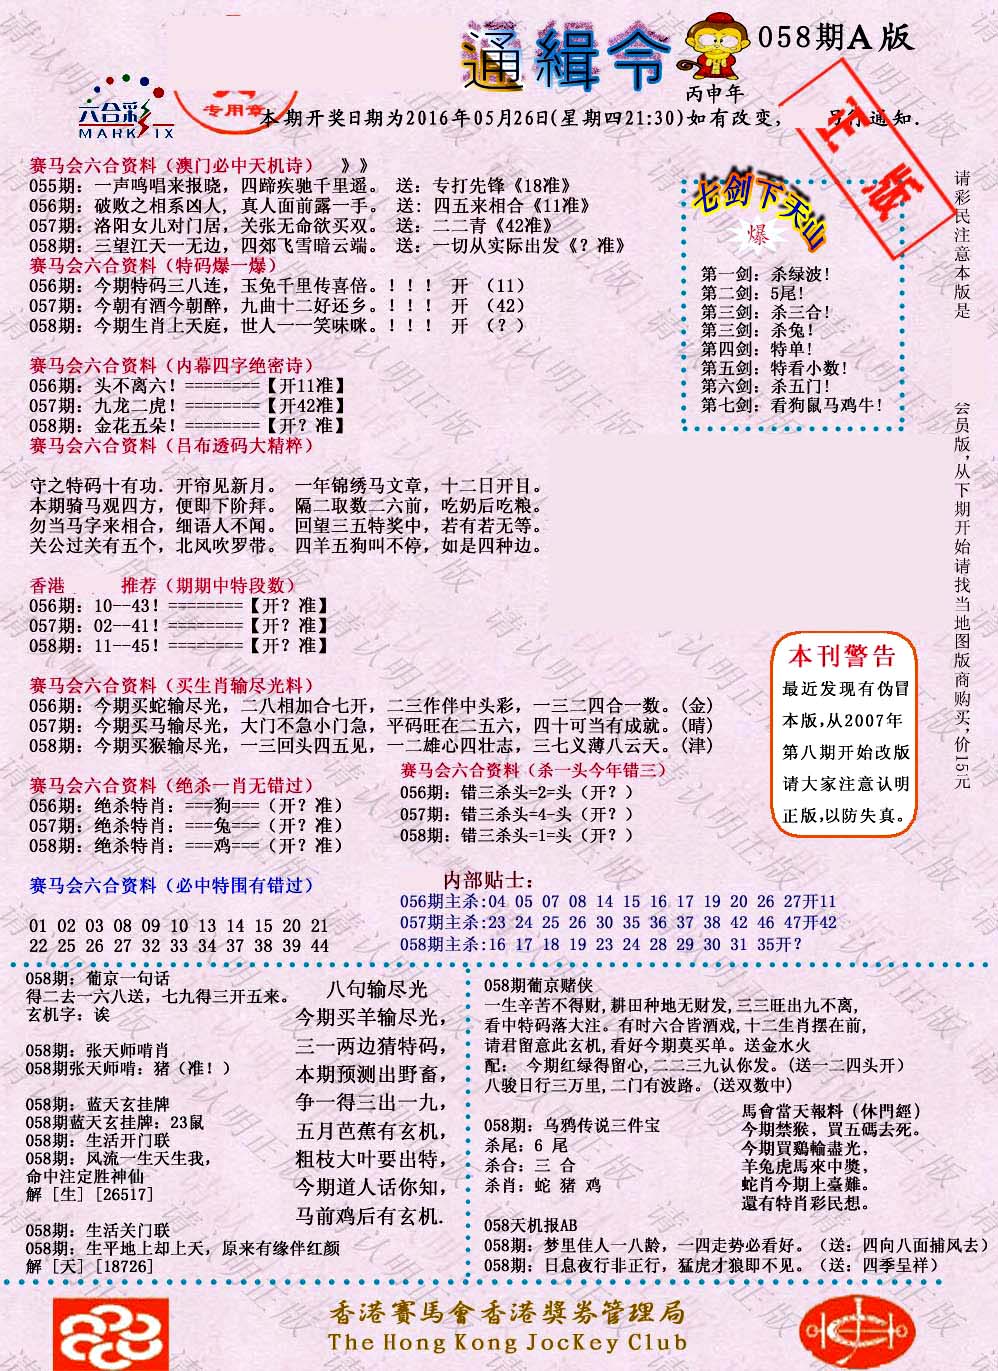 通緝令
058期A版
丙申年
六合彩
MARK SIX
专用章
本期开奖日期为2016年05月26日(星期四21:30)如有改变,
通知.
正版
赛马会六合资料（澳门必中天机诗） 》》
055期：一声鸣唱来报晓，四蹄疾驰千里遥。 送：专打先锋《18准》
056期：破败之相系凶人, 真人面前露一手。 送：四五来相合《11准》
057期：洛阳女儿对门居，关张无命欲买双。 送：二二青《42准》
058期：三望江天一无边，四郊飞雪暗云端。 送：一切从实际出发《？准》
赛马会六合资料（特码爆一爆）
056期：今期特码三八连，玉兔千里传喜倍。！！！ 开 （11）
057期：今朝有酒今朝醉，九曲十二好还乡。！！！ 开 （42）
058期：今期生肖上天庭，世人一一笑味咪。！！！ 开 （？）
赛马会六合资料（内幕四字绝密诗）
056期：头不离六！========【开11准】
057期：九龙二虎！========【开42准】
058期：金花五朵！========【开？准】
赛马会六合资料（吕布透码大精粹）
守之特码十有功．开帘见新月。 一年锦绣马文章，十二日开目。
本期骑马观四方，便即下阶拜。 隔二取数二六前，吃奶后吃粮。
勿当马字来相合，细语人不闻。 回望三五特奖中，若有若无等。
关公过关有五个，北风吹罗带。 四羊五狗叫不停，如是四种边。
香港 推荐（期期中特段数）
056期：10--43！========【开？准】
057期：02--41！========【开？准】
058期：11--45！========【开？准】
赛马会六合资料（买生肖输尽光料）
056期：今期买蛇输尽光，二八相加合七开，二三作伴中头彩，一三二四合一数。(金)
057期：今期买马输尽光，大门不急小门急，平码旺在二五六，四十可当有成就。(晴)
058期：今期买猴输尽光，一三回头四五见，一二雄心四壮志，三七义薄八云天。(津)
赛马会六合资料（绝杀一肖无错过）
056期：绝杀特肖：===狗===（开？准）
057期：绝杀特肖：===兔===（开？准）
058期：绝杀特肖：===鸡===（开？准）
赛马会六合资料（杀一头今年错三）
056期：错三杀头=2=头（开？）
057期：错三杀头=4-头（开？）
058期：错三杀头=1=头（开？）
赛马会六合资料（必中特围有错过）
01 02 03 08 09 10 13 14 15 20 21
22 25 26 27 32 33 34 37 38 39 44
内部贴士：
056期主杀:04 05 07 08 14 15 16 17 19 20 26 27开11
057期主杀:23 24 25 26 30 35 36 37 38 42 46 47开42
058期主杀:16 17 18 19 23 24 28 29 30 31 35开？
七剑下天山
爆
第一剑：杀绿波!
第二剑：5尾!
第三剑：杀三合!
第三剑：杀兔!
第四剑：特单!
第五剑：特看小数!
第六剑：杀五门!
第七剑：看狗鼠马鸡牛!
请彩民注意本版是
会员版,从下期开始请找当地图版商购买,价15元
本刊警告
最近发现有伪冒
本版,从2007年
第八期开始改版
请大家注意认明
正版,以防失真。
058期：葡京一句话
得二去一六八送，七九得三开五来。
玄机字：诶
058期：张天师啃肖
058期张天师啃：猪（准！）
058期：蓝天玄挂牌
058期蓝天玄挂牌：23鼠
058期：生活开门联
058期：风流一生天生我，
命中注定胜神仙
解 [生] [26517]
058期：生活关门联
058期：生平地上却上天，原来有缘伴红颜
解 [天] [18726]
八句输尽光
今期买羊输尽光，
三一两边猜特码，
本期预测出野畜，
争一得三出一九，
五月芭蕉有玄机，
粗枝大叶要出特，
今期道人话你知，
马前鸡后有玄机.
058期葡京赌侠
一生辛苦不得财,耕田种地无财发,三三旺出九不离,
看中特码落大注。有时六合皆酒戏,十二生肖摆在前,
请君留意此玄机,看好今期莫买单。送金水火
配： 今期红绿得留心,二二三九认你发。(送一二四头开）
八骏日行三万里,二门有波路。(送双数中)
058期：乌鸦传说三件宝
杀尾：6 尾
杀合：三 合
杀肖：蛇 猪 鸡
馬會當天報料（休門經）
今期禁猴，買五碼去死。
今期買鷄輸盡光，
羊兔虎馬來中獎，
蛇肖今期上臺難。
還有特肖彩民想。
058天机报AB
058期：梦里佳人一八龄，一四走势必看好。（送：四向八面捕风去）
058期：日息夜行非正行，猛虎才狼即不见。（送：四季呈祥）
香港賽馬會香港獎券管理局
The Hong Kong JocKey Club